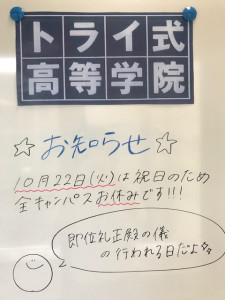 トライ式
高等学院
☆お知らせ☆
10月22日(火)は祝日のため
全キャンパスお休みです!!!
即位礼正殿の儀
の行われる日だよ